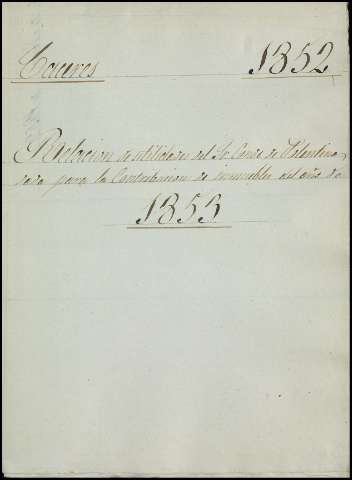 Caceres 1852
Relacion de utilidades del Sr. Conde de Valentina,
para la Contribucion de inmuebles del año de
1853